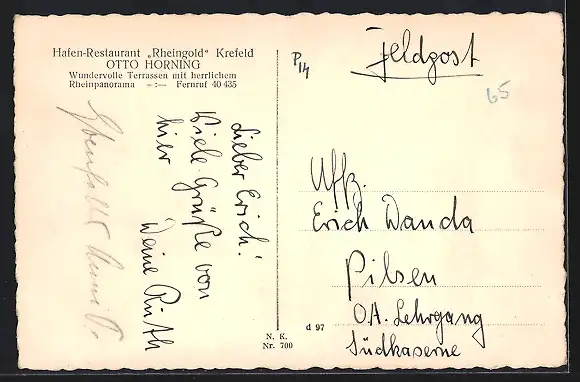 Hafen-Restaurant „Rheingold“ Krefeld
OTTO HORNING
Wundervolle Terrassen mit herrlichem
Rheinpanorama —:— Fernruf 40 435
Lieber Erich!
Viele Grüße von
hier
Deine Ruth
Ebenfalls
N. K.
Nr. 700
d 97
P14
Feldpost
65
Uffz.
Erich Wanda
Pilsen
O.A. Lehrgang
Südkaserne